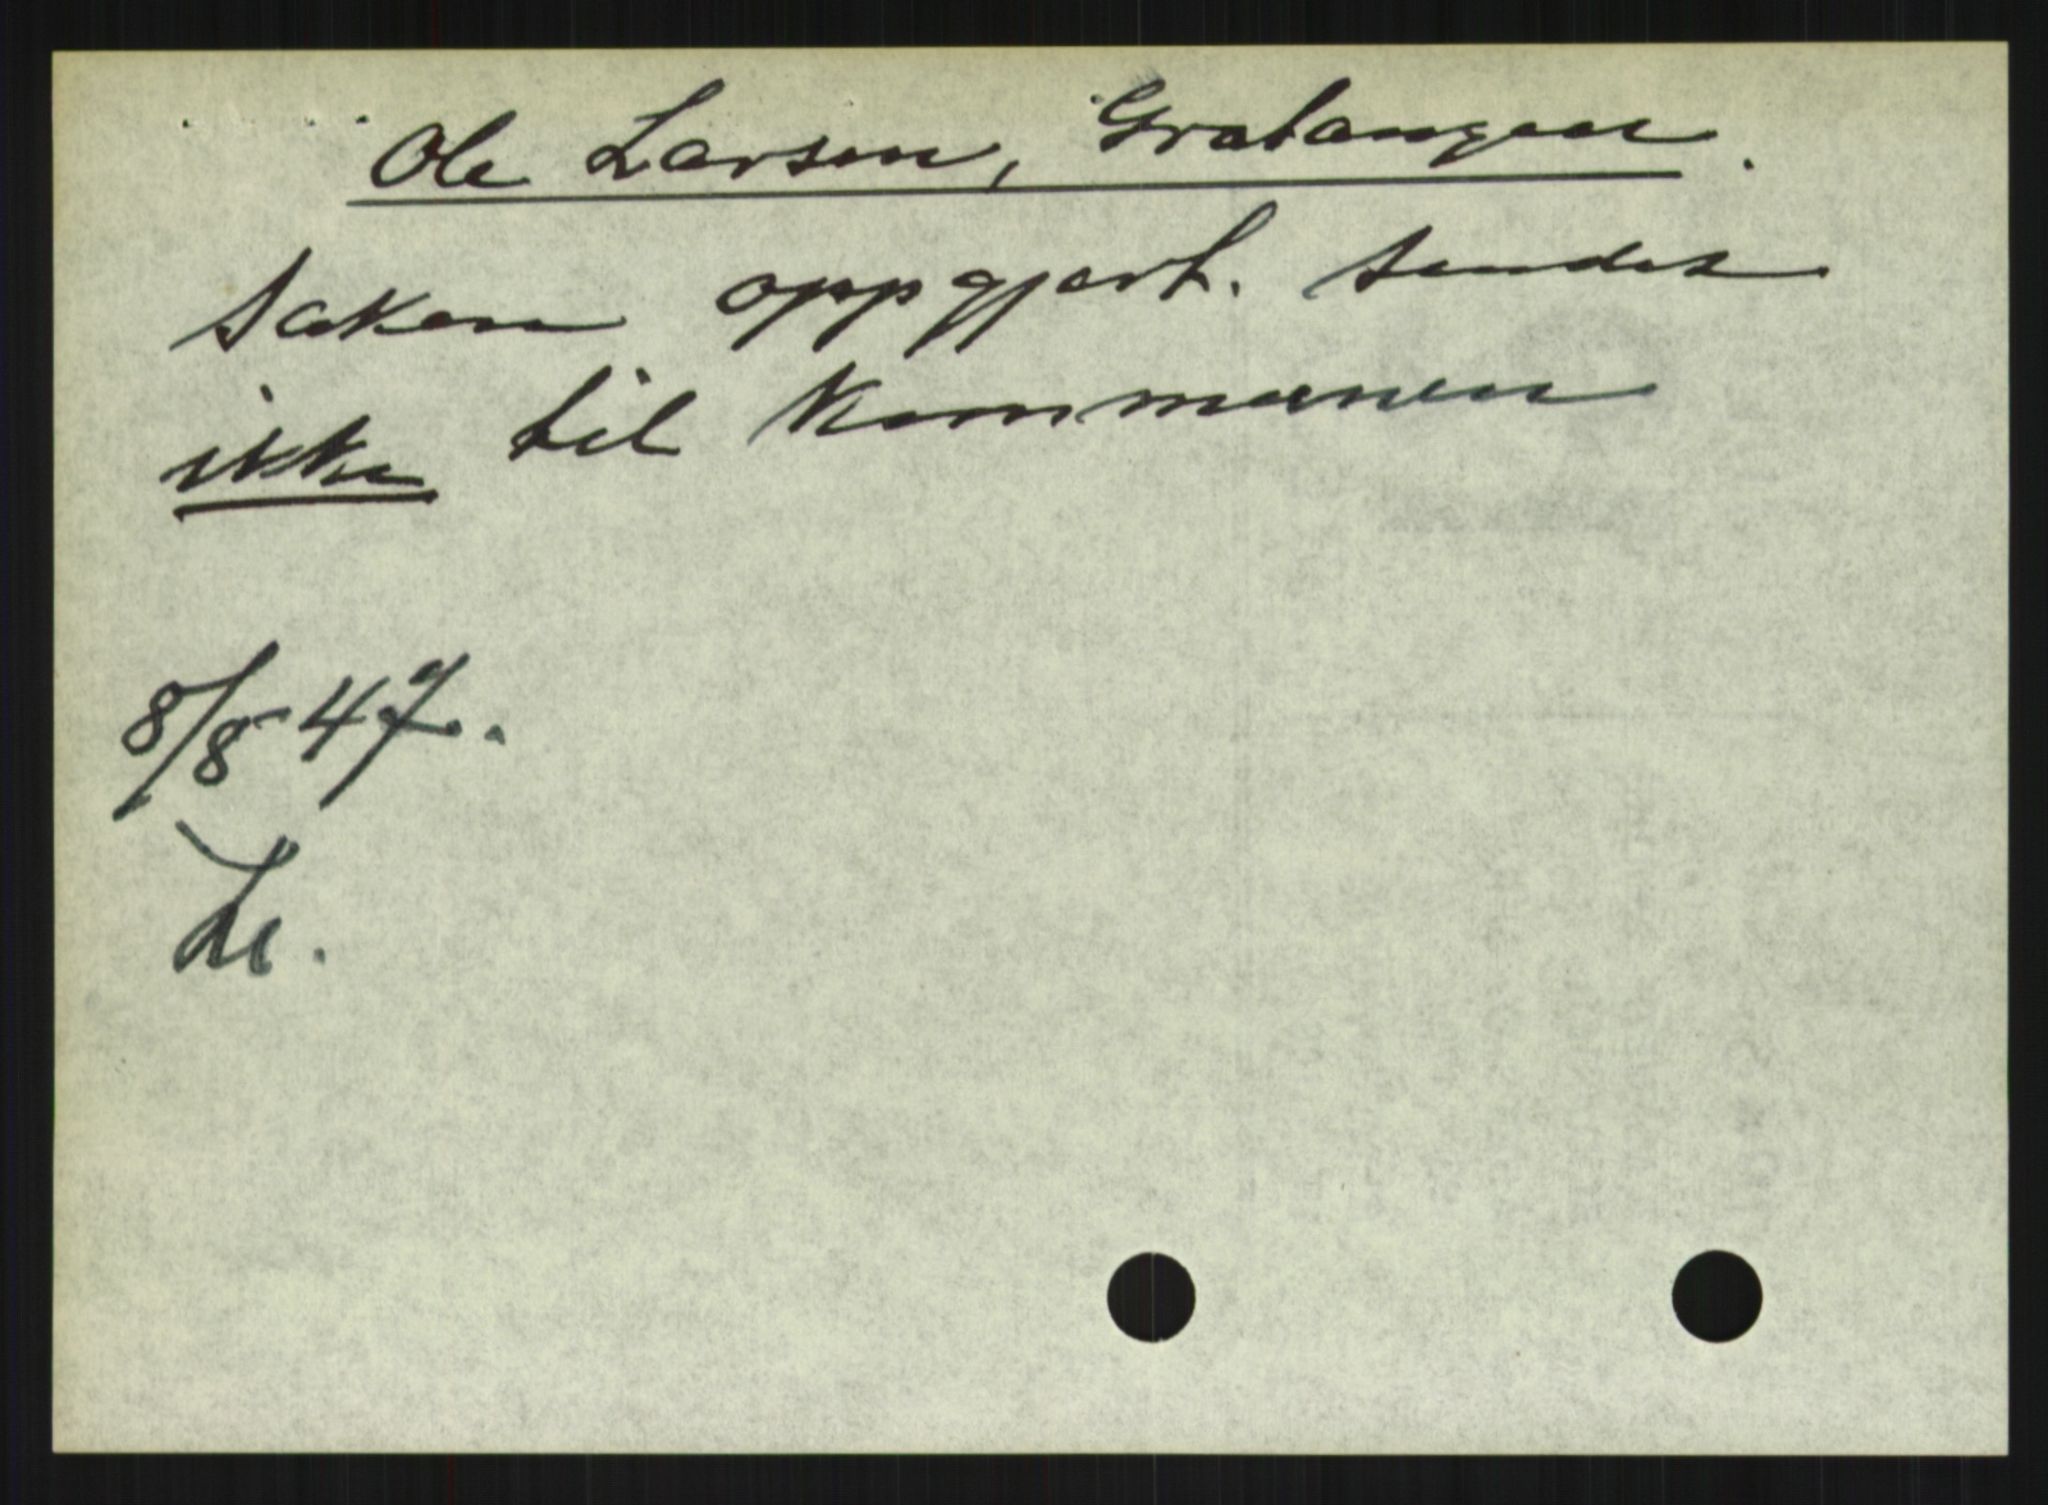 Ole Larsen, Gratangen.
Saken oppgjort. Sendes
ikke til kommunen
8/8-47.
Le.